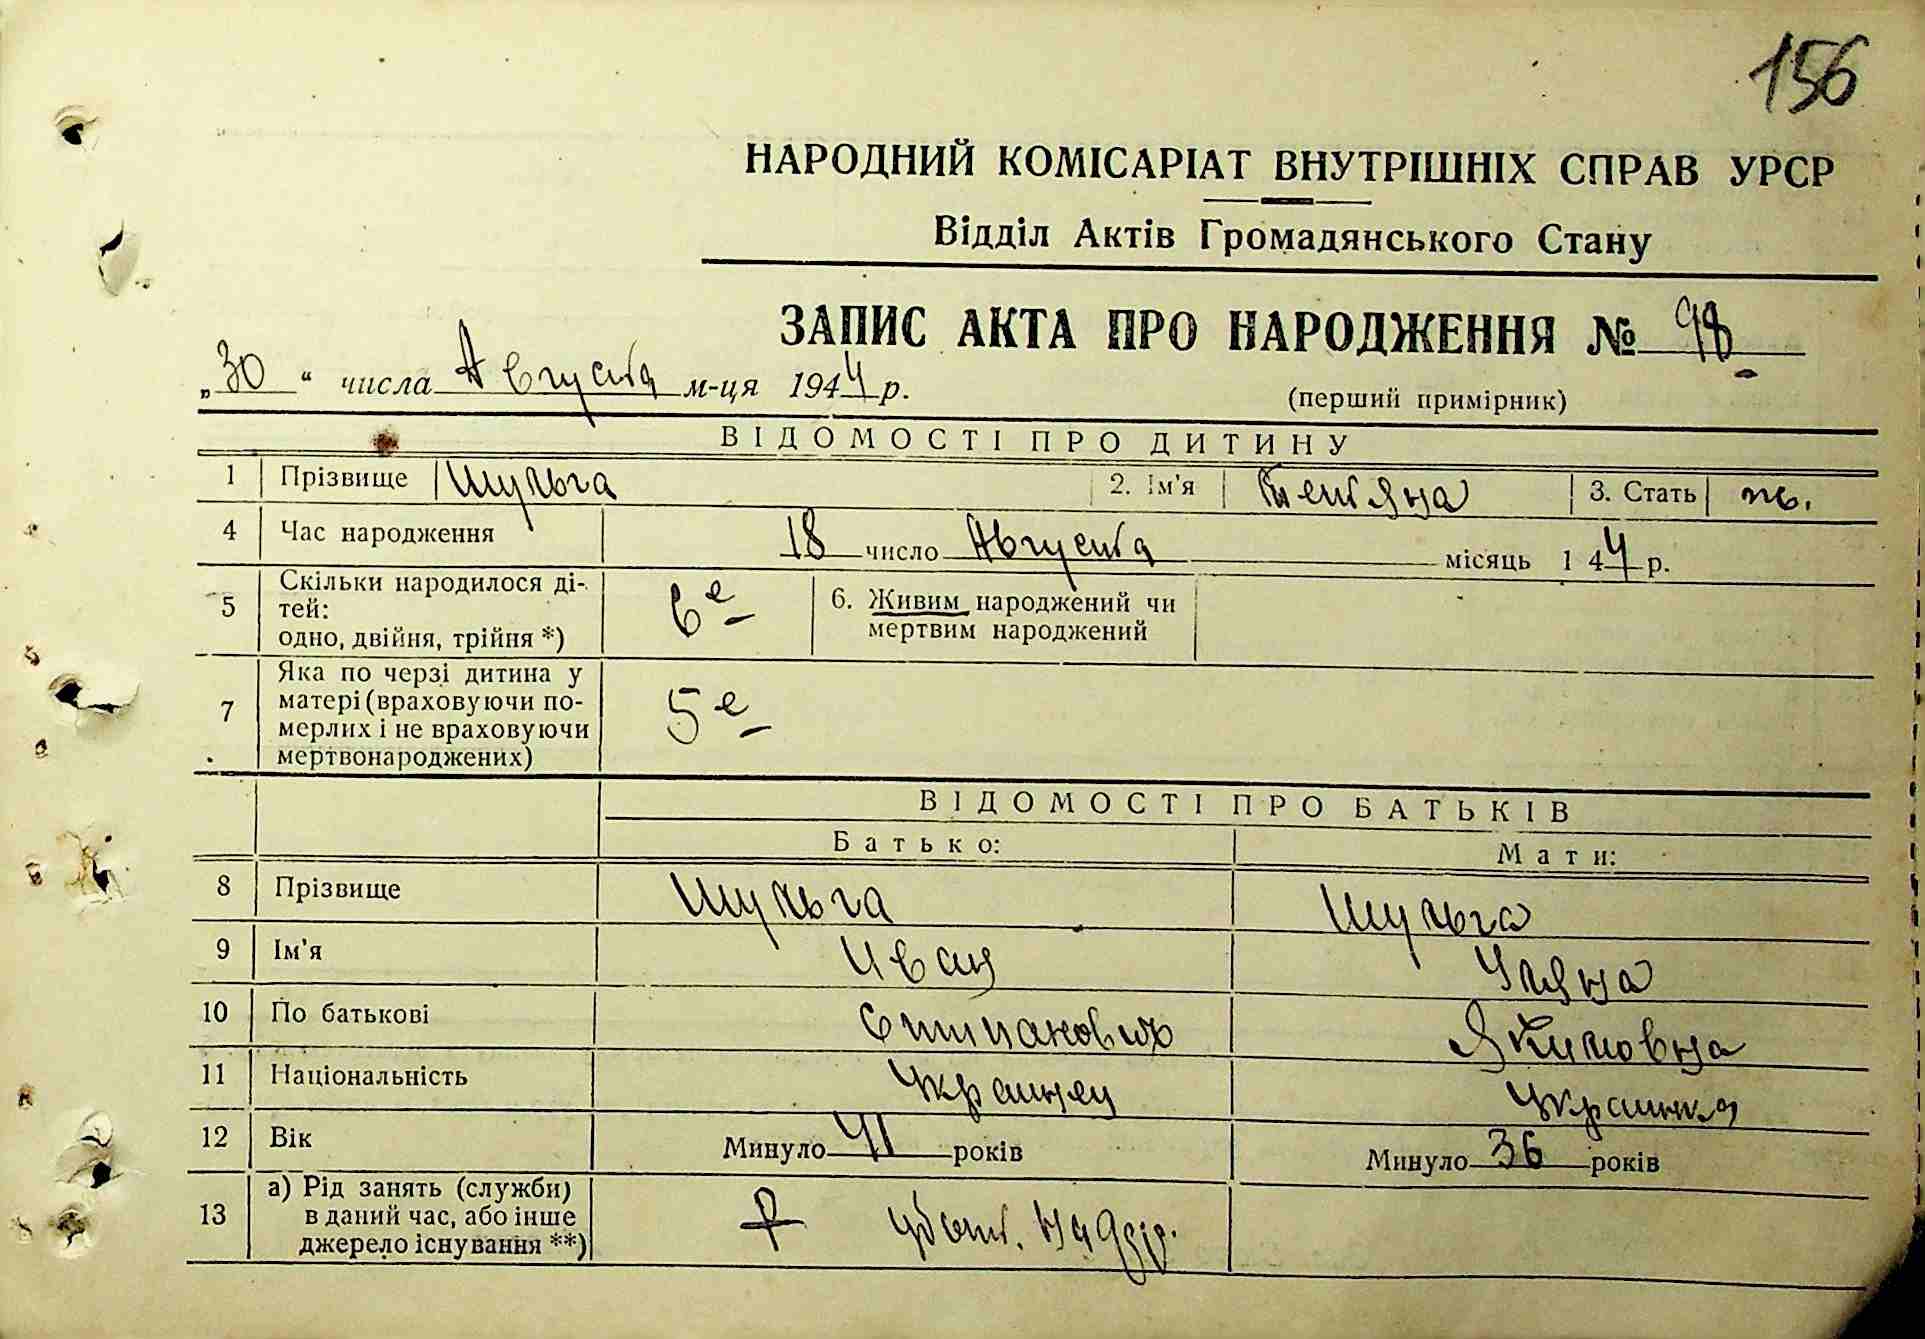 156
НАРОДНИЙ КОМІСАРІАТ ВНУТРІШНІХ СПРАВ УРСР
Відділ Актів Громадянського Стану
ЗАПИС АКТА ПРО НАРОДЖЕННЯ № 98
„30“ числа Августа м-ця 1944 р.
(перший примірник)
ВІДОМОСТІ ПРО ДИТИНУ
1 Прізвище Шульга 2. Ім'я Татьяна 3. Стать ж.
4 Час народження 18 число Августа місяць 1 44 р.
5 Скільки народилося ді-
тей:
одно, двійня, трійня *) 6е
6. Живим народжений чи
мертвим народжений
7 Яка по черзі дитина у
матері (враховуючи по-
мерлих і не враховуючи
мертвонароджених) 5е
ВІДОМОСТІ ПРО БАТЬКІВ
Батько: Мати:
8 Прізвище Шульга Шульга
9 Ім'я Иван Уляна
10 По батькові Степанович Якимовна
11 Національність Украинец Украинка
12 Вік Минуло 41 років Минуло 36 років
13 а) Рід занять (служби)
в даний час, або інше
джерело існування **)